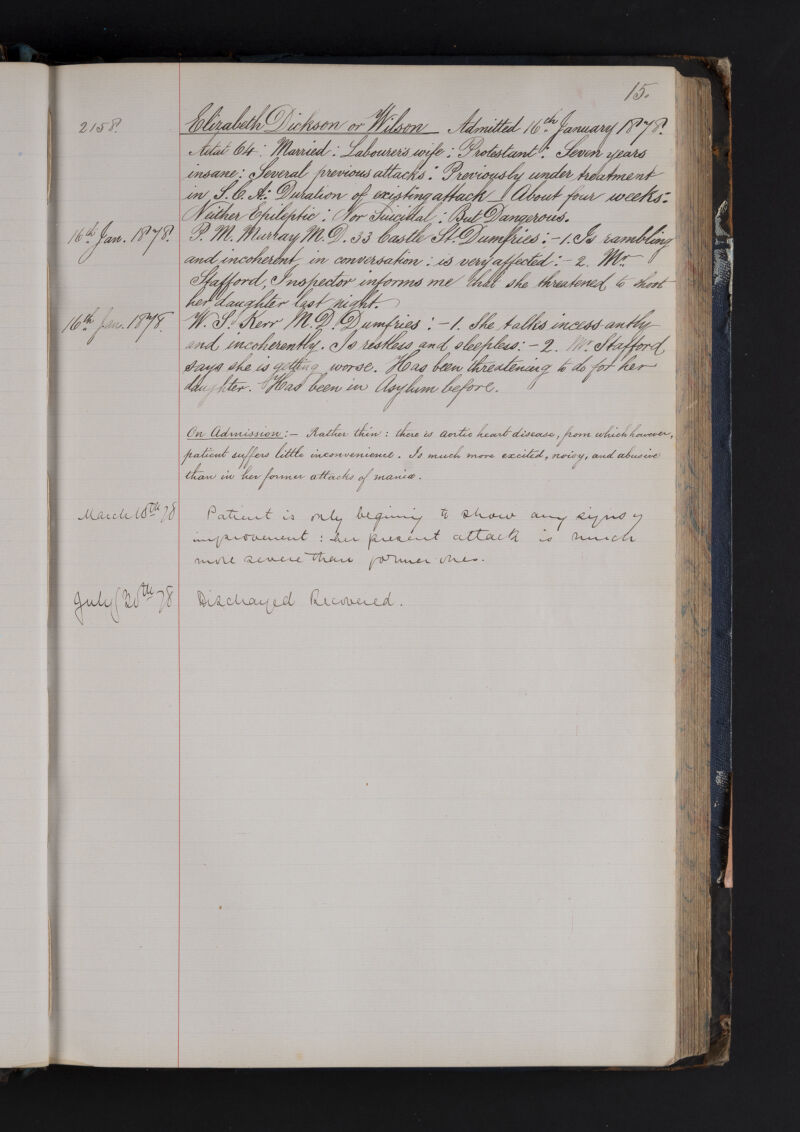 15.
2158. Elizabeth Dickson or Wilson Admitted 16th January 1878.
Aetat 64 : Married : Labourer's wife : Protestant : Seven years
insane : Several previous attacks : Previously under treatment
in S. C. A : Duration of existing attack About four weeks :
Neither Epileptic : Nor Suicidal : But Dangerous.
16th Jan. 1878. P. M. Murray M. D. 33 Castle St. Dumfries : - 1. Is rambling
and incoherent in conversation : is very affected : - 2. Mr
Stafford, Inspector informs me that she threatened to shoot
her daughter last night.
16th Jan. 1878. W. S. Kerr M. D. Dumfries : - 1. She talks incessantly
and incoherently. Is restless and sleepless : - 2. Mr Stafford
says she is getting worse. Has been threatening to do for her
daughter. Has been in Asylum before.
On Admission : - Rather thin : there is aortic heart disease, from which however,
patient suffers little inconvenience. Is much more excited, noisy, and abusive
than in her former attacks of mania.
March 18th 78 Patient is only begining to show any signs of
improvement : her present attack is much
more severe than former ones.
July 30th 78 Discharged Recovered.